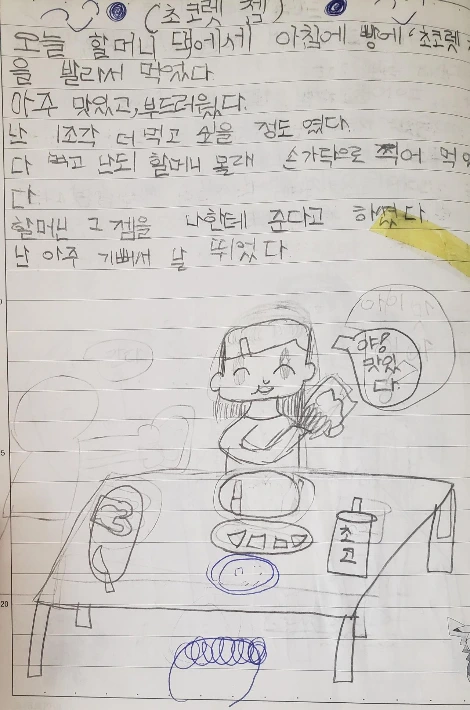 (초코렛 잼)
오늘 할머니 댁에서 아침에 빵에 '초코렛
을 발라서 먹었다.
아주 맛있고, 부드러웠다.
난 1조각 더 먹고 싶을 정도 였다.
다 먹고 난뒤 할머니 몰래 손가락으로 찍어 먹
다.
할머닌 그 잼을 나한테 준다고 하셨다
난 아주 기뻐서 날 뛰었다.
맛있
다.
초
코
5
20